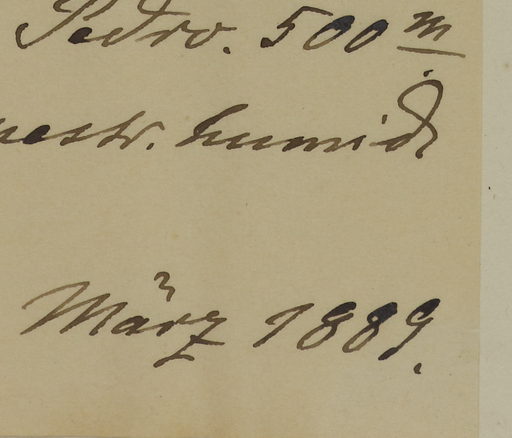 Pedro. 500 m
pestr. humid.
März 1889.